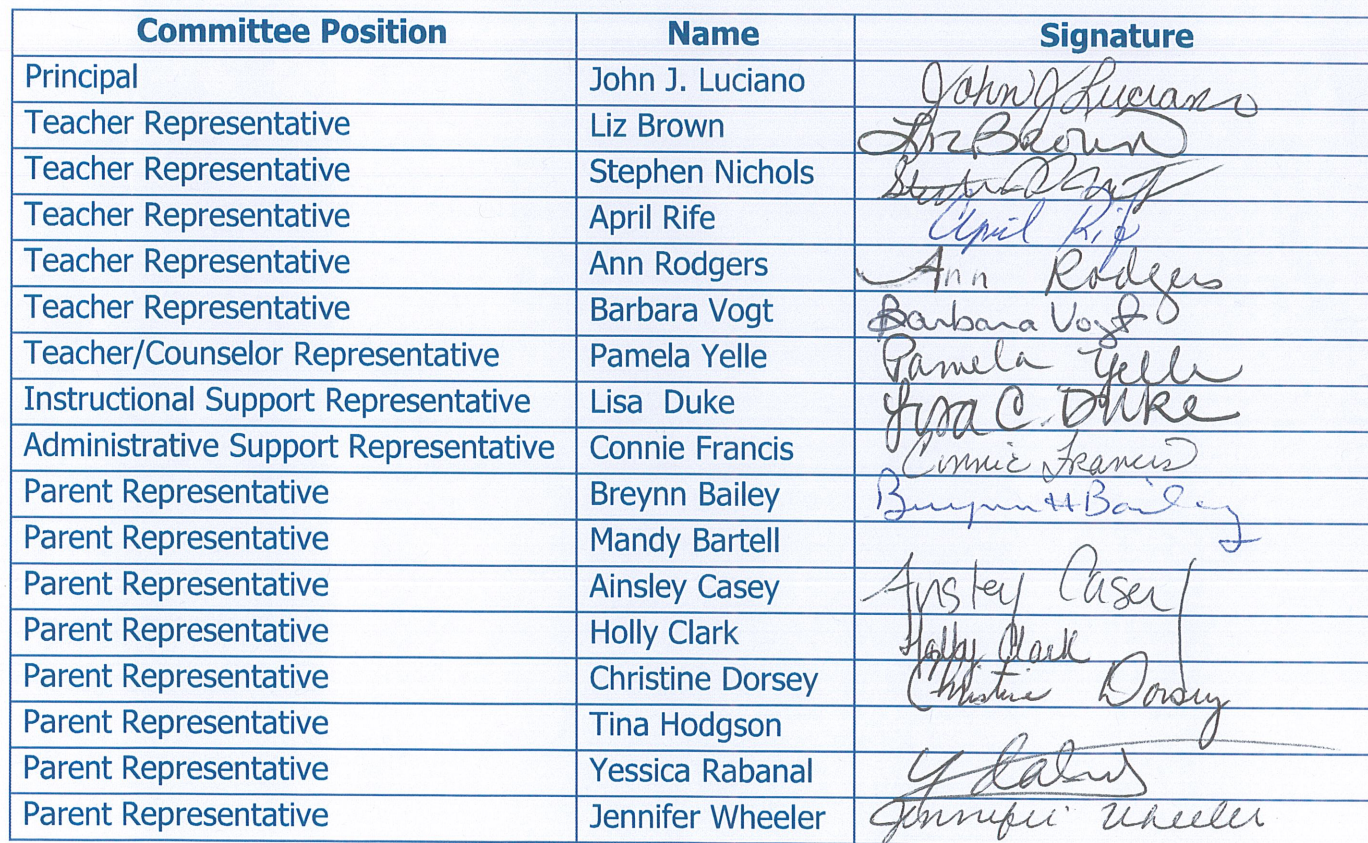 Committee Position Name Signature
Principal John J. Luciano John J Luciano
Teacher Representative Liz Brown Liz Brown
Teacher Representative Stephen Nichols
Teacher Representative April Rife April Rife
Teacher Representative Ann Rodgers Ann Rodgers
Teacher Representative Barbara Vogt Barbara Vogt
Teacher/Counselor Representative Pamela Yelle Pamela Yelle
Instructional Support Representative Lisa Duke Lisa C. Duke
Administrative Support Representative Connie Francis Connie Francis
Parent Representative Breynn Bailey Breynn H Bailey
Parent Representative Mandy Bartell
Parent Representative Ainsley Casey Ainsley Casey
Parent Representative Holly Clark Holly Clark
Parent Representative Christine Dorsey Christine Dorsey
Parent Representative Tina Hodgson
Parent Representative Yessica Rabanal
Parent Representative Jennifer Wheeler Jennifer Wheeler